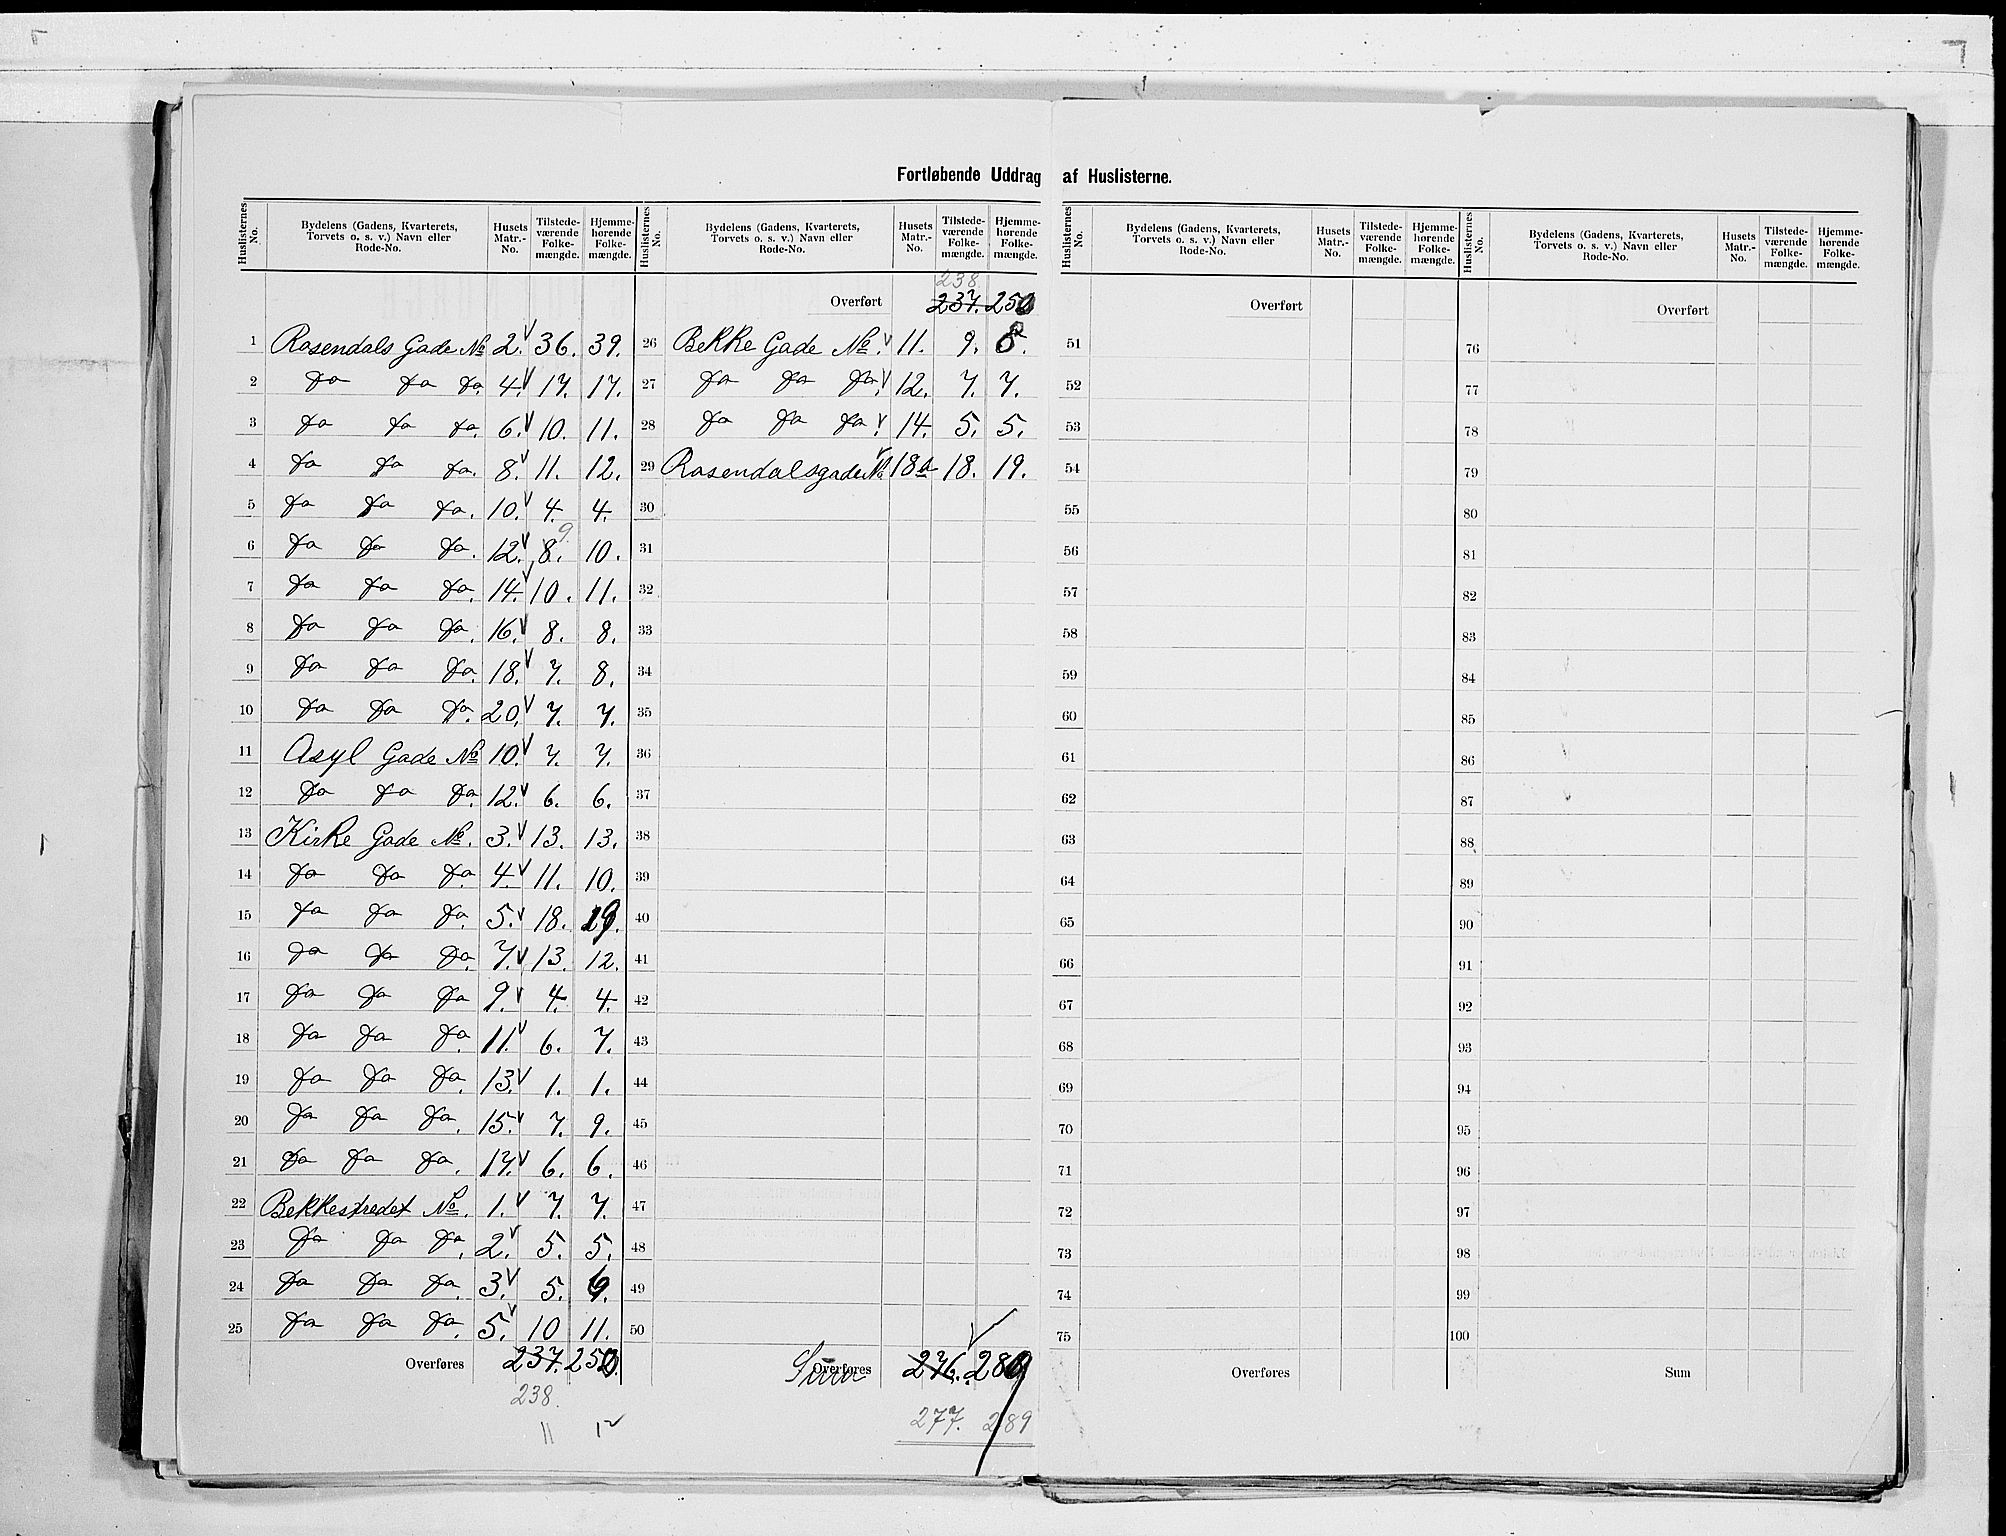 Fortløbende Uddrag af Huslisterne.
Huslisternes No. | Bydelens (Gadens, Kvarterets, Torvets o. s. v.) Navn eller Rode-No. | Husets Matr.-No. | Tilstede-værende Folke-mængde. | Hjemme-hørende Folke-mængde.
1 Rosendals Gade No 2. 36. 39.
2 do do do. 4. 17. 17.
3 do do do. 6. 10. 11.
4 do do do. 8. 11. 12.
5 do do do. 10. 4. 4.
6 do do do. 12. 8. 9. 10.
7 do do do. 14. 10. 11.
8 do do do. 16. 8. 8.
9 do do do. 18. 7. 8.
10 do do do. 20. 7. 7.
11 Asyl Gade No 10. 7. 7.
12 do do do. 12. 6. 6.
13 Kirke Gade No. 3. 13. 13.
14 do do do. 4. 11. 10.
15 do do do. 5. 18. 19.
16 do do do. 7. 13. 12.
17 do do do 9. 4. 4.
18 do do do. 11. 6. 7.
19 do do do. 13. 1. 1.
20 do do do. 15. 7. 9.
21 do do do. 17. 6. 6.
22 Bekkestredet No. 1. 7. 7.
23 do do do. 2. 5. 5.
24 do do do. 3. 5. 6.
25 do do do. 5. 10 11.
Overføres 237. 250.
238.
11 12
Huslisternes No. | Bydelens (Gadens, Kvarterets, Torvets o. s. v.) Navn eller Rode-No. | Husets Matr.-No. | Tilstede-værende Folke-mængde. | Hjemme-hørende Folke-mængde.
238
Overført 237. 250
26 Bekke Gade No. 11. 9. 8.
27 do do do. 12. 7. 7.
28 do do do. 14. 5. 5.
29 Rosendalsgade No 18a 18. 19.
30
31
32
33
34
35
36
37
38
39
40
41
42
43
44
45
46
47
48
49
50
Overføres Sum 276. 289
277. 289
Huslisternes No. | Bydelens (Gadens, Kvarterets, Torvets o. s. v.) Navn eller Rode-No. | Husets Matr.-No. | Tilstede-værende Folke-mængde. | Hjemme-hørende Folke-mængde.
Overført
51
52
53
54
55
56
57
58
59
60
61
62
63
64
65
66
67
68
69
70
71
72
73
74
75
Overføres
Huslisternes No. | Bydelens (Gadens, Kvarterets, Torvets o. s. v.) Navn eller Rode-No. | Husets Matr.-No. | Tilstede-værende Folke-mængde. | Hjemme-hørende Folke-mængde.
Overført
76
77
78
79
80
81
82
83
84
85
86
87
88
89
90
91
92
93
94
95
96
97
98
99
100
Sum